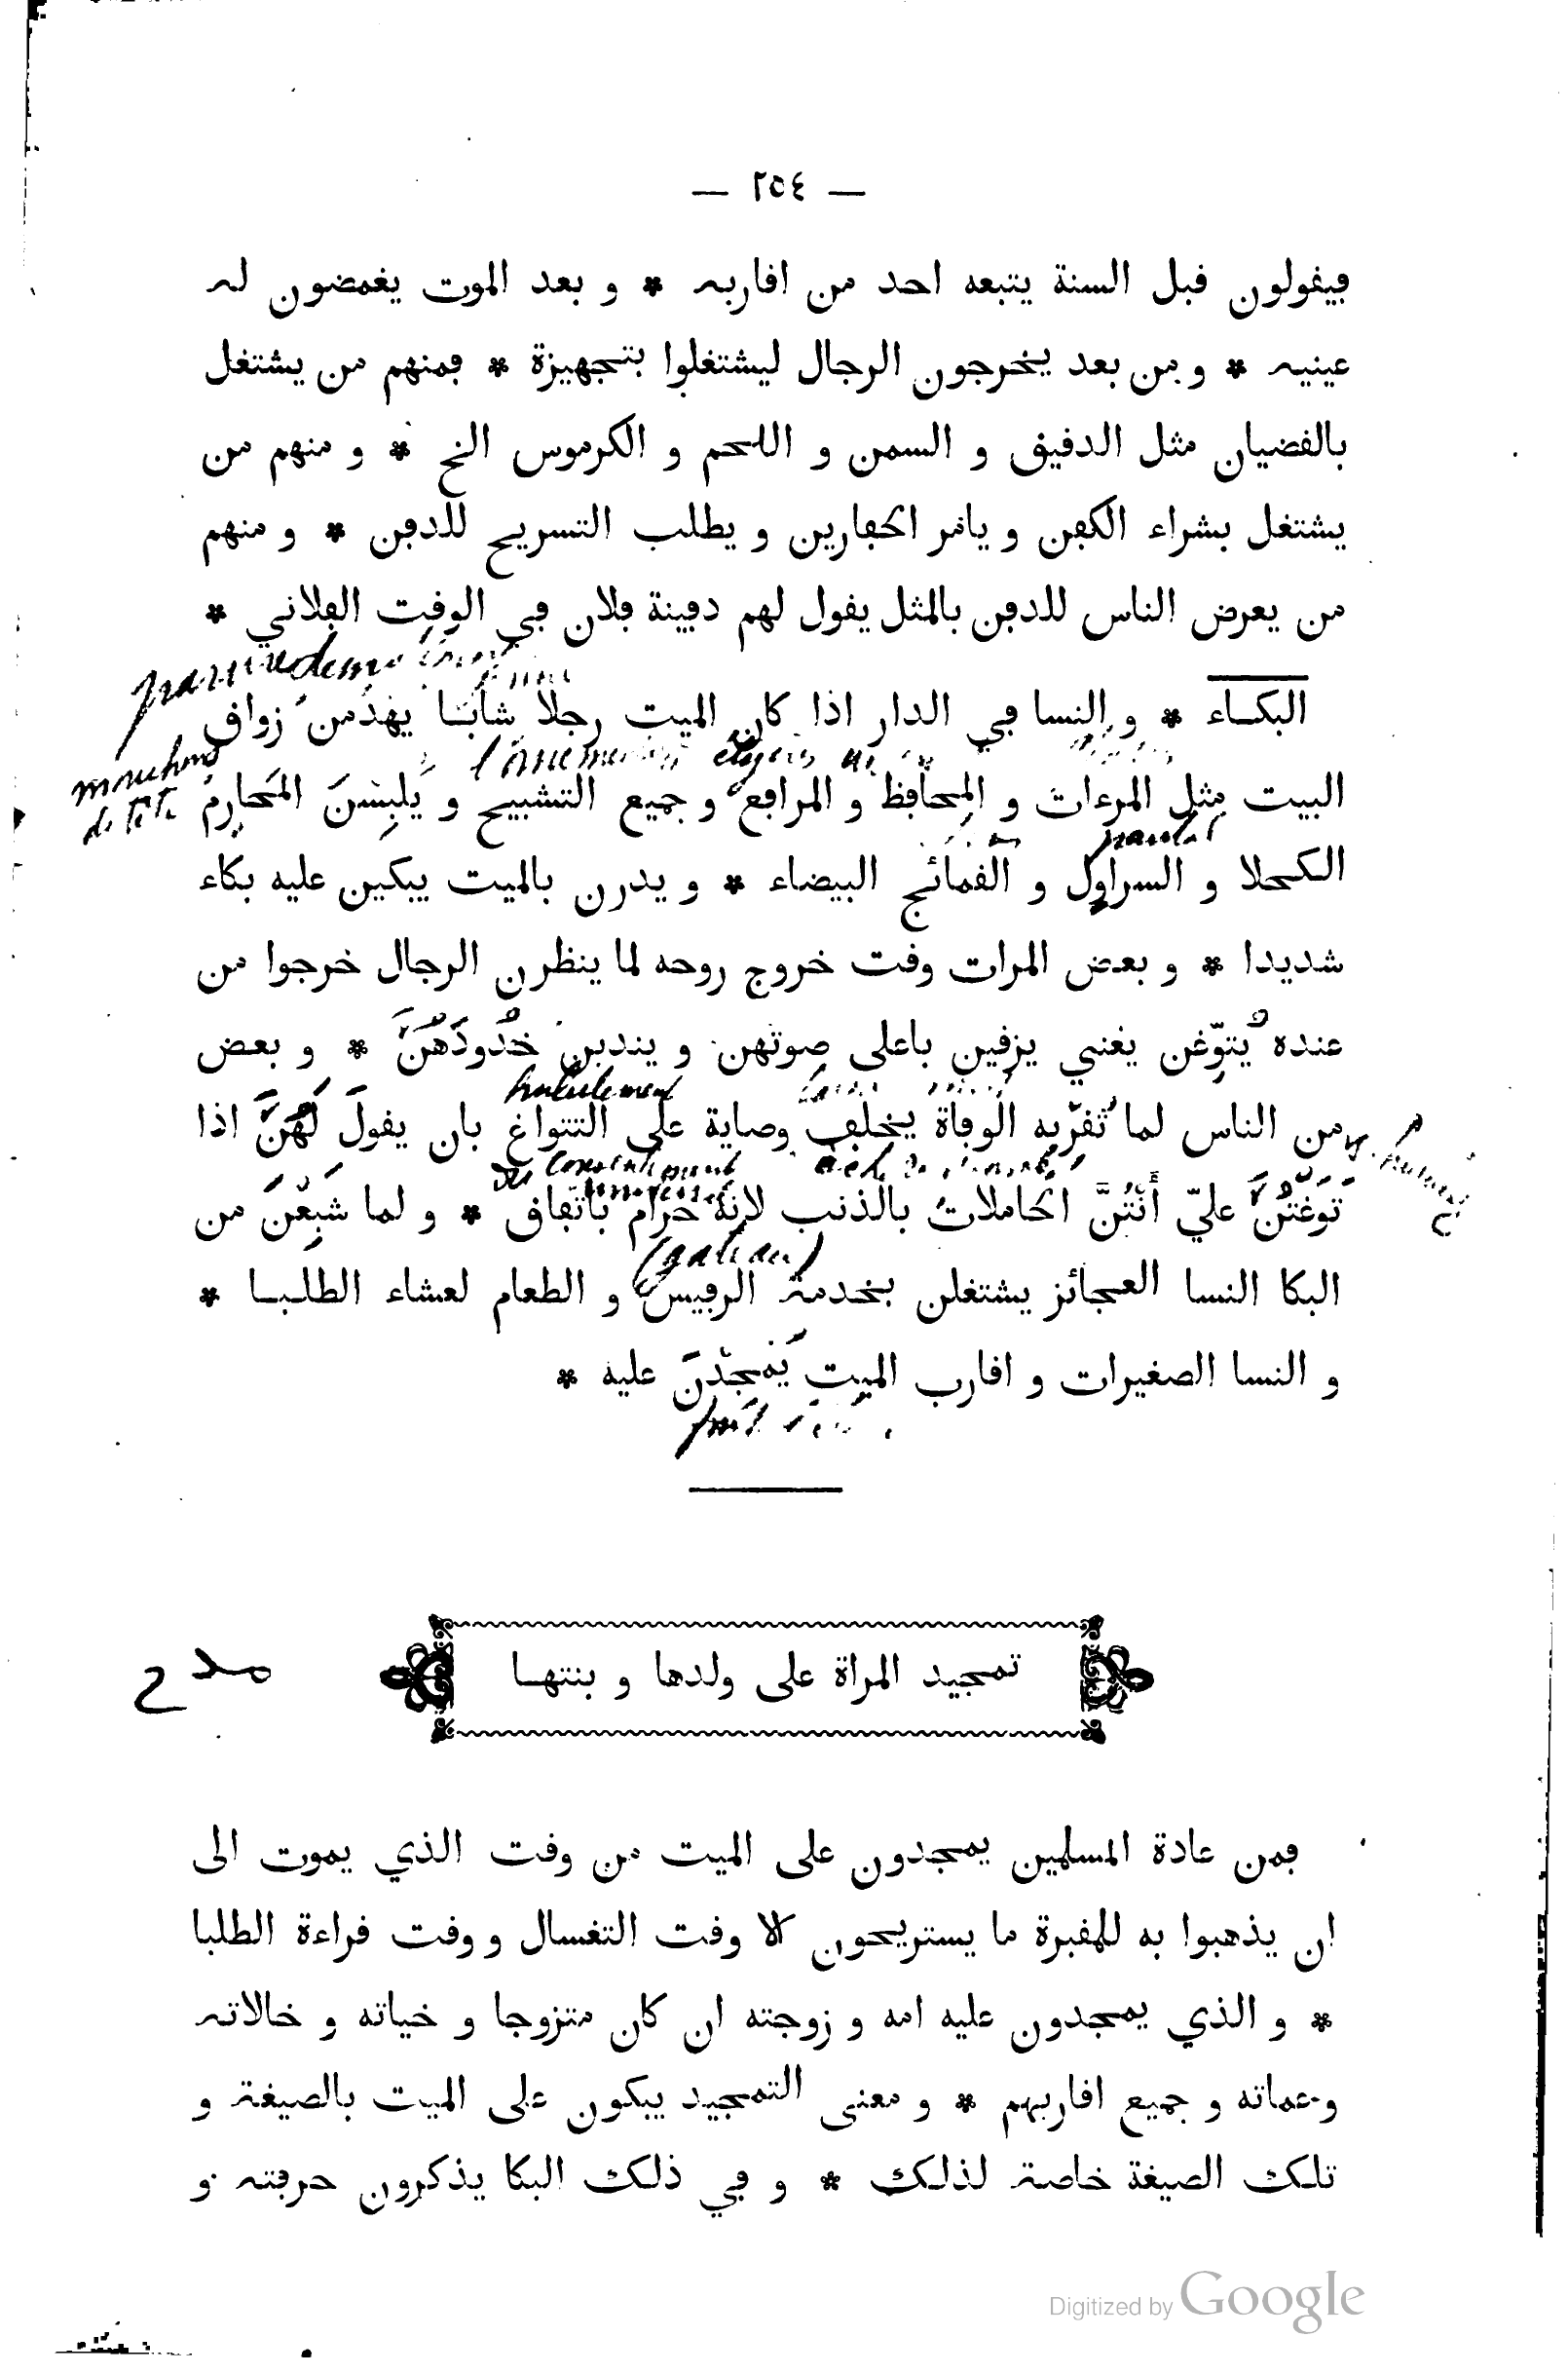 — ٢٥٤ —
فيقولون قبل السنة يتبعه احد من اقاربه * و بعد الموت يغمضون له
عينيه * و من بعد يخرجون الرجال ليشتغلوا بتجهيزة * فمنهم من يشتغل
بالقضيان مثل الدقيق و السمن و اللحم و الكرموس الخ * و منهم من
يشتغل بشراء الكفن و يامر الحفارين و يطلب التسريح للدفن * و منهم
من يعرض الناس للدفن بالمثل يقول لهم دفينة فلان في الوقت الفلاني *
البكاء * و النسا في الدار اذا كان الميت رجلا شابا يهدمن زواق
mouchoirs
de tête
البيت مثل المرءات و المحافظ و المرافع و جميع التشبيح و يلبسن المحارم
الكحلا و السراول و القمائج البيضاء * و يدرن بالميت يبكين عليه بكاء
شديدا * و بعض المرات وقت خروج روحه لما ينظرن الرجال خرجوا من
عنده يتوّغن يعني يزقين باعلى صوتهن و يندبن خُدُودَهُنَّ * و بعض
hululement
من الناس لما تقرّبه الوفاة يخلف وصاية على التتواغ بان يقول لَهُنَّ اذا
du consentement
تَوَّغْتُنَّ عليّ أَنْتُنَّ الحاملات بالذنب لانه حرام باتفاق * و لما شَبِعْنَ من
(gateau)
البكا النسا العجائز يشتغلن بخدمة الرفيس و الطعام لعشاء الطلبا *
و النسا الصغيرات و اقارب الميت يَمجّدْنَ عليه *
تمجيد المراة على ولدها و بنتها
مدح
فمن عادة المسلمين يمجدون على الميت من وقت الذي يموت الى
ان يذهبوا به للمقبرة ما يستريحون الا وقت التغسال و وقت قراءة الطلبا
* و الذي يمجدون عليه امه و زوجته ان كان متزوجا و خياته و خالاته
و عماته و جميع اقاربهم * و معنى التمجيد يبكون على الميت بالصيغة و
تلك الصيغة خاصة لذلك * و في ذلك البكا يذكرون حرفته و
Digitized by Google